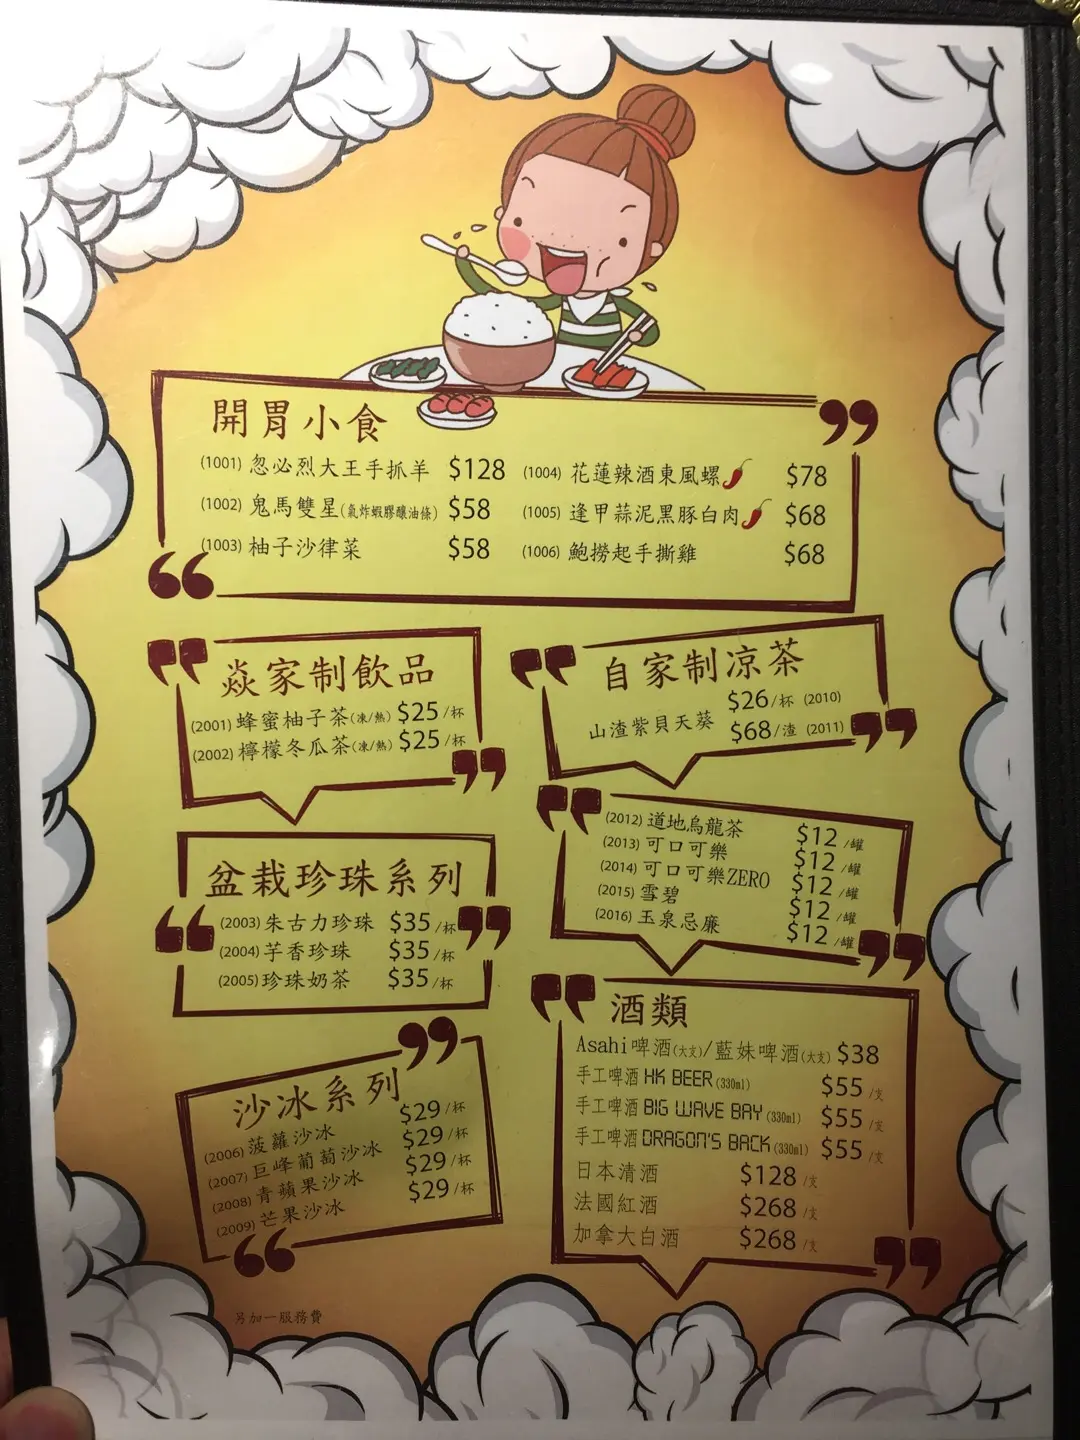 開胃小食
(1001) 忽必烈大王手抓羊 $128
(1002) 鬼馬雙星(氣炸蝦膠釀油條) $58
(1003) 柚子沙律菜 $58
(1004) 花蓮辣酒東風螺 $78
(1005) 逢甲蒜泥黑豚白肉 $68
(1006) 鮑撈起手撕雞 $68
焱家制飲品
(2001) 蜂蜜柚子茶(凍/熱) $25/杯
(2002) 檸檬冬瓜茶(凍/熱) $25/杯
自家制凉茶
山渣紫貝天葵
$26/杯 (2010)
$68/渣 (2011)
盆栽珍珠系列
(2003) 朱古力珍珠 $35/杯
(2004) 芋香珍珠 $35/杯
(2005) 珍珠奶茶 $35/杯
(2012) 道地烏龍茶 $12/罐
(2013) 可口可樂 $12/罐
(2014) 可口可樂ZERO $12/罐
(2015) 雪碧 $12/罐
(2016) 玉泉忌廉 $12/罐
沙冰系列
(2006) 菠蘿沙冰 $29/杯
(2007) 巨峰葡萄沙冰 $29/杯
(2008) 青蘋果沙冰 $29/杯
(2009) 芒果沙冰 $29/杯
酒類
Asahi啤酒(大支)/藍妹啤酒(大支) $38
手工啤酒 HK BEER (330ml) $55/支
手工啤酒 BIG WAVE BAY (330ml) $55/支
手工啤酒 DRAGON'S BACK (330ml) $55/支
日本清酒 $128/支
法國紅酒 $268/支
加拿大白酒 $268/支
另加一服務費